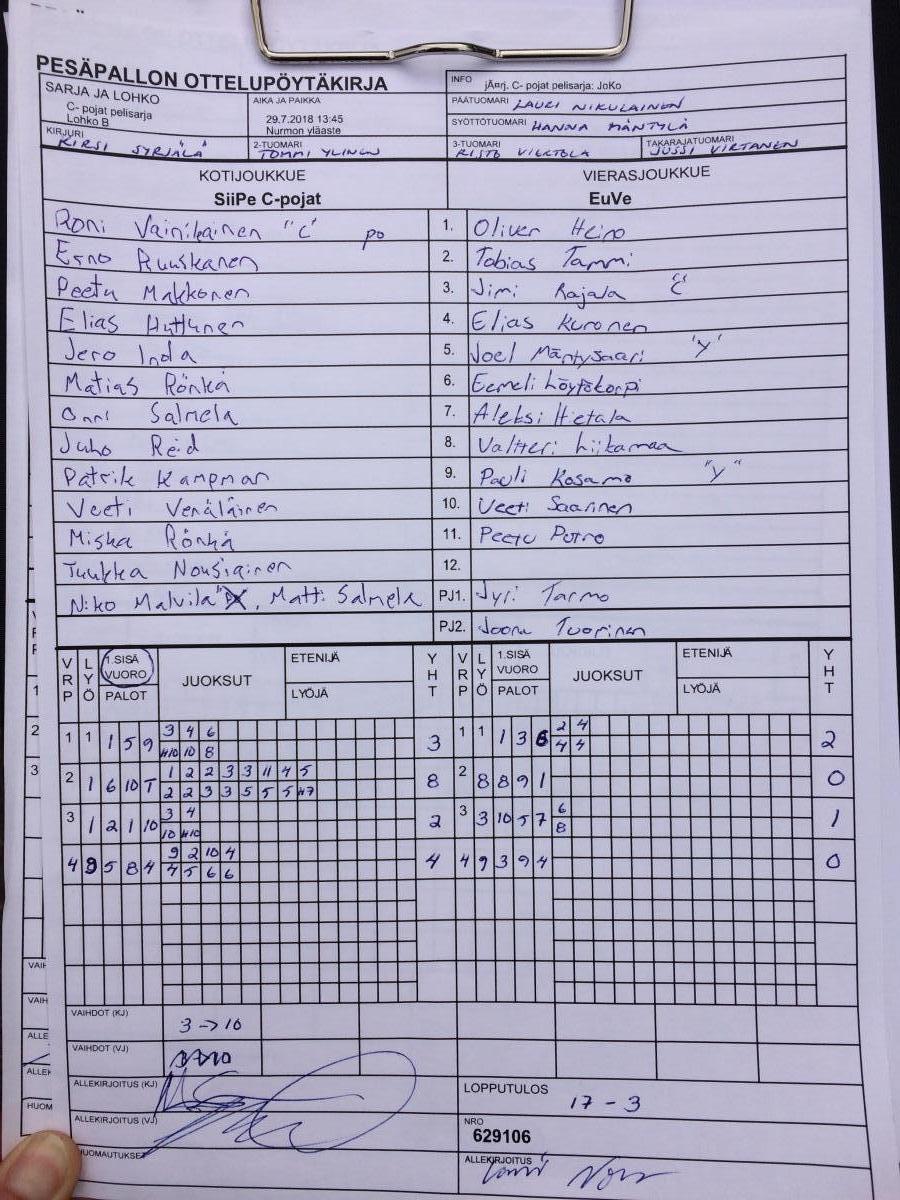 PESÄPALLON OTTELUPÖYTÄKIRJA
INFO
jÄrj. C- pojat pelisarja: JoKo
SARJA JA LOHKO
C- pojat pelisarja
Lohko B
AIKA JA PAIKKA
29.7.2018 13:45
Nurmon yläaste
PÄÄTUOMARI LAURI NIKULAINEN
SYÖTTÖTUOMARI HANNA MÄNTYLÄ
KIRJURI KIRSI SYRJÄLÄ
2-TUOMARI TOMMI YLINEN
3-TUOMARI RISTO VIERTOLA
TAKARAJATUOMARI JUSSI VIRTANEN
KOTIJOUKKUE VIERASJOUKKUE
SiiPe C-pojat EuVe
Roni Vainikainen "C" po 1. Oliver Heino
Eino Ruuskanen 2. Tobias Tammi
Peetu Makkonen 3. Jimi Rajala "C"
Elias Huttunen 4. Elias Kuronen
Jero Inda 5. Joel Mäntysaari "y"
Matias Rönkä 6. Eemeli Löytökorpi
Onni Salmela 7. Aleksi Hietala
Juho Reid 8. Valtteri Liikamaa
Patrik Kampman 9. Pauli Kosamo "y"
Veeti Venäläinen 10. Veeti Saarinen
Miska Rönkä 11. Peetu Potro
Tuukka Nousiainen 12.
Niko Malvila , Matti Salmela PJ1. Jyri Tarmo
PJ2. Joonu Tuorinen
VRP LYÖ 1.SISÄ VUORO PALOT JUOKSUT ETENIJÄ LYÖJÄ YHT VRP LYÖ 1.SISÄ VUORO PALOT JUOKSUT ETENIJÄ LYÖJÄ YHT
3 4 6 2 4
1 1 1 5 9 3 1 1 1 3 6 2
#10 10 8 4 4
1 2 2 3 3 11 4 5
2 1 6 10 T 8 2 8 8 9 1 0
2 2 3 3 5 5 5 #7
3 4 6
3 1 2 1 10 2 3 3 10 5 7 1
10 #10 8
9 2 10 4
4 9 5 8 4 4 4 9 3 9 4 0
4 5 6 6
VAIHDOT (KJ) 3 -> 10
VAIHDOT (VJ)
ALLEKIRJOITUS (KJ)
LOPPUTULOS 17 - 3
ALLEKIRJOITUS (VJ)
NRO
629106
HUOMAUTUKSET
ALLEKIRJOITUS